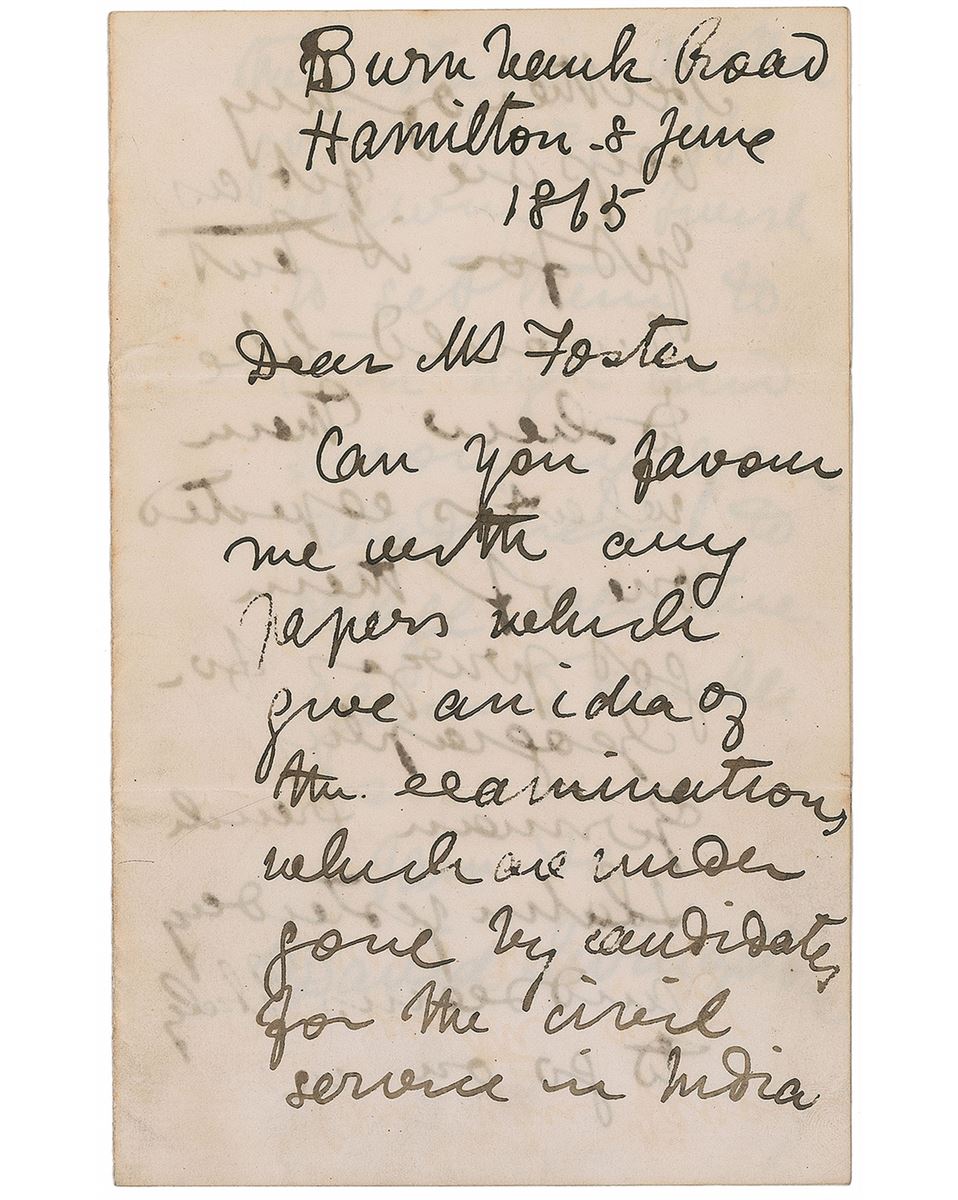 Burnbank Road
Hamilton 8 June
1865
Dear Mr Foster
Can you favour
me with any
papers which
give an idea of
the examinations
which are under
gone by candidates
for the civil
service in India